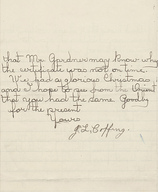 that Mr Gardner may know why
the certificate was not on time.
We had a glorious Christmas
and I hope to see from the Orient
that you had the same Goodby
for the present
Yours
J. L. Coffing.